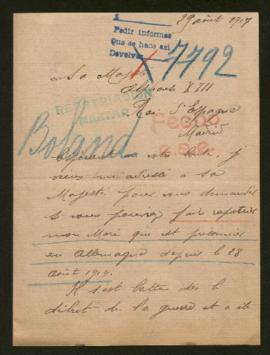 29 août 1917
Pedir informes
Que se hace así
Devolver
X 7792
Sa Majesté
Alphonse XIII
Roi d'Espagne
Madrid
REPATRIACION
MILITAR
Fecho
Boland
je
viens m'adresser à Sa
Majesté pour vous demander
si vous pouvez faire rapatrier
mon Mari qui est prisonnier
en Allemagne depuis le 28
Août 1914.
Il s'est battu dès le
début de la guerre et a été